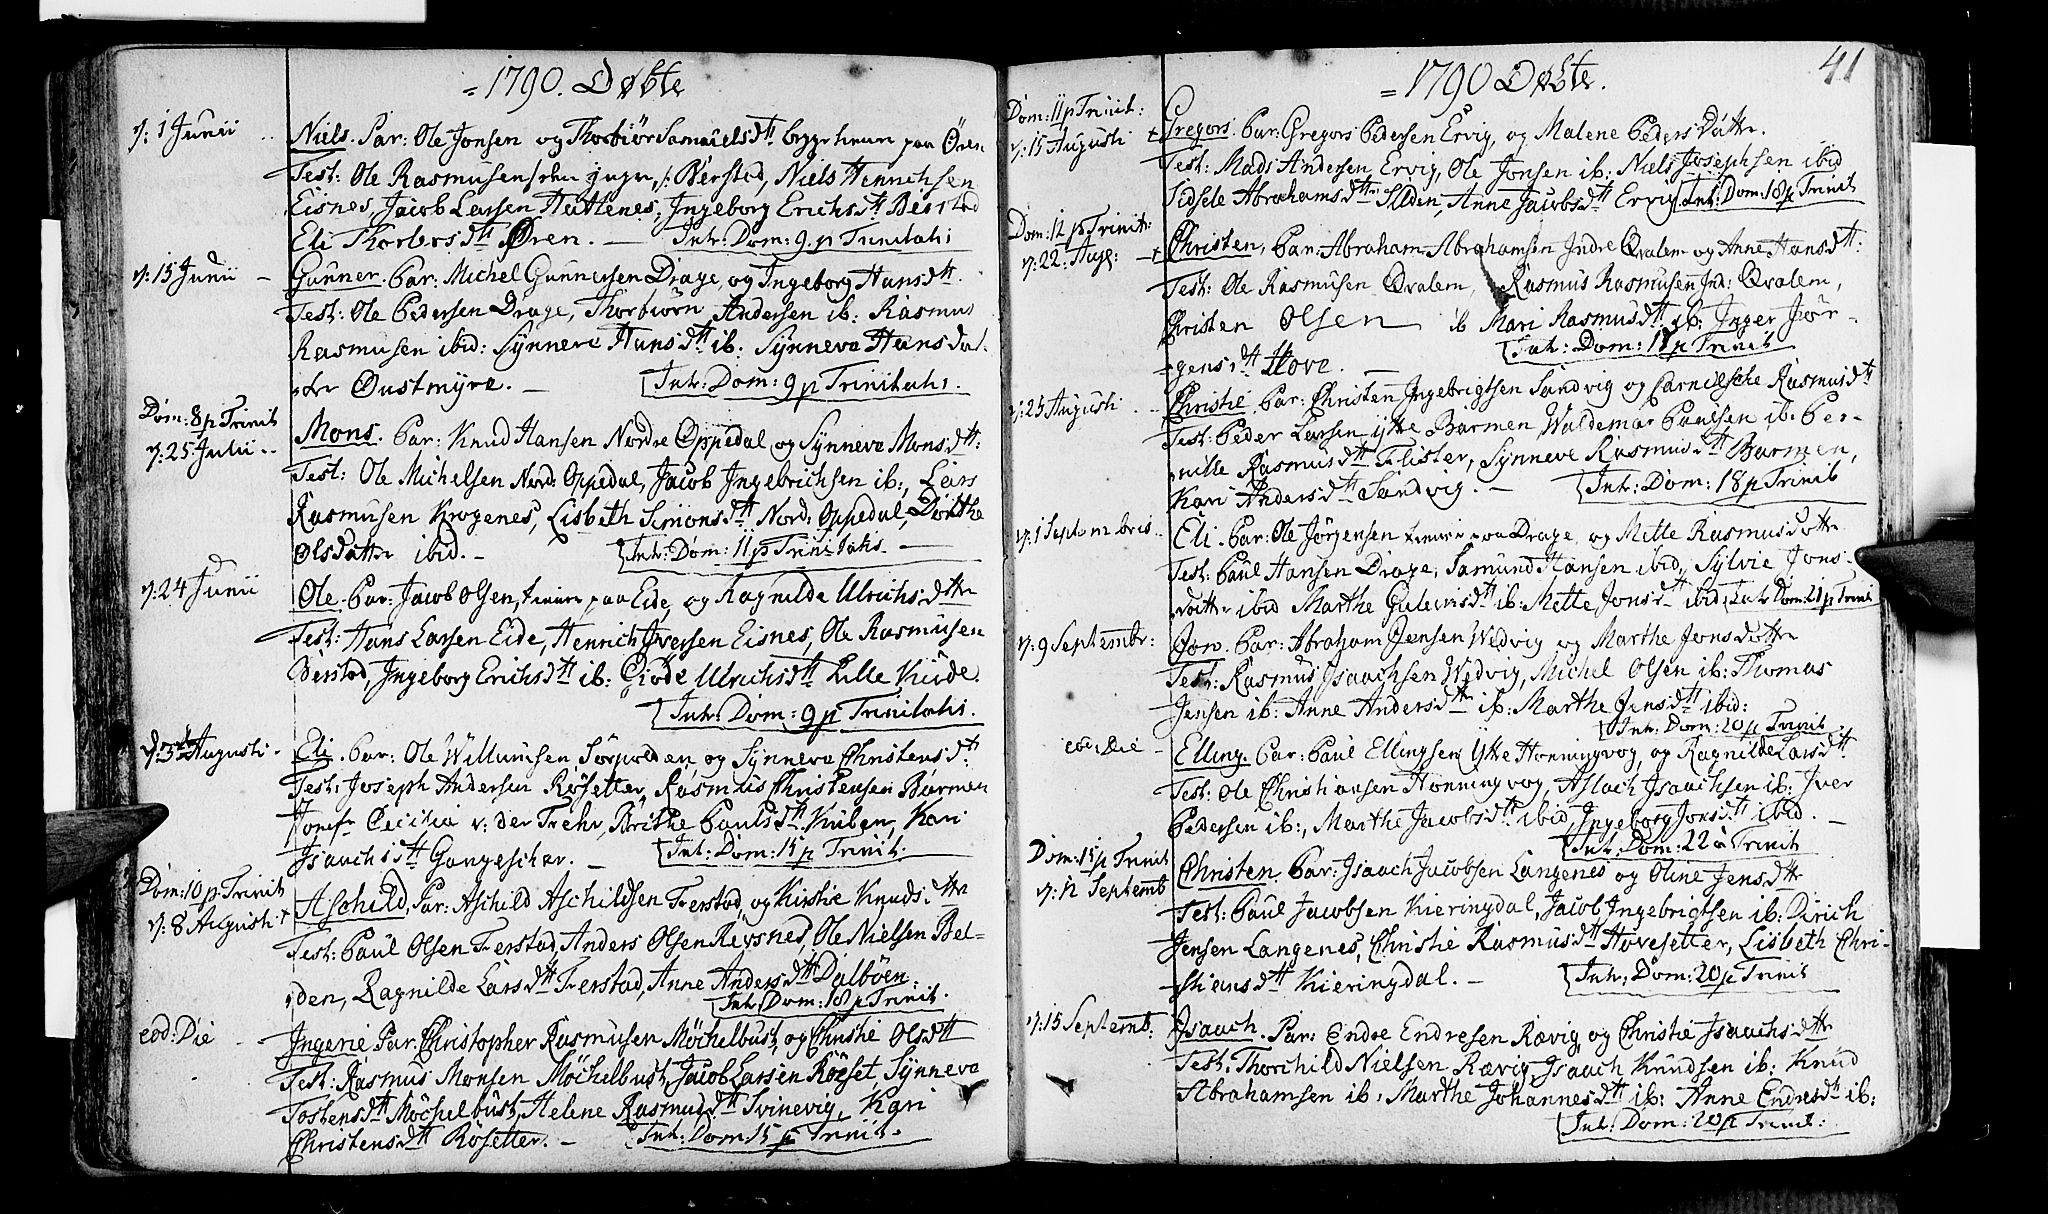 =1790. Døbte
d: 1 Junii .. Niels. Par: Ole Jonsen og Thorbiør Samuelsdtt bygge heim paa Ören
Test: Ole Rasmusen /:den yngre:/ Berstad, Niels Henrichsen
Eisnes, Jacob Larsen Hattenes, Ingeborg Erichsdtt Berstad
Eli Thorlersdtt Øren. — Intr: Dom: 9. p Trinitatis
d: 15 Junii — Gunner. Par: Michel Gunnersen Drage, og Ingeborg Hansdtt.
Test: Ole Pedersen Drage, Thorbiörn Andersen ib: Rasmus
Rasmusen ibid: Synneve Hansdtt ib: Synneva Hansdat-
ter Oustmyre. — Intr: Dom: 9 p Trinitatis.
Dom: 8 p Trinit
d: 25 Julii .. Mons. Par: Knud Hansen Nordre Oppedal og Synneva Monsdtt:
Test: Ole Michelsen Nord: Oppedal, Jacob Ingebrichsen ib:, Lars
Rasmusen Krogenes, Lisbeth Simonsdtt Nord: Oppedal, Dorthe
Olsdatter ibid. — Intr: Dom: 11 p Trinitatis —
d: 24 Junii Ole. Par: Jacob Olsen, tiener paa Eide, og Ragnilde Ulrichsdtter
Test: Hans Larsen Eide, Henrich Iversen Eisnes, Ole Rasmusen
Berstad, Ingeborg Erichsdtt ib: Giöde Ulrichsdtt Lille Kirde.
Intr: Dom: 9 p Trinitatis.
d: 3de Augusti - Eli. Par: Ole Willumsen Sørpolden og Synneva Christensdtt:
Test: Joseph Andersen Rösetter, Rasmus Christensen Barmen
Jomfr Cecilia v: der Fehr, Brithe Paulsdtt Kuben, Kari
Isaachsdtt Gangescher. — Intr: Dom: 15 p Trinit.
Dom: 10 p Trinit
d: 8 Augusti + Aschild, Par: Aschild Aschildsen Frerstad, og Kirstie Knudsdtter
Test: Paul Olsen Frerstad, Anders Olsen Revsnes, Ole Nielsen Bel-
den, Ragnilde Larsdtt Frerstad, Anne Andersdtt Dalböen.
Intr: Dom: 18 p Trinit.
eod: Die — Ingerie Par: Christopher Rasmusen Möchelbust, og Christie Olsdtt
Test: Rasmus Monsen Möchelbust, Jacob Larsen Röeset, Synneva
Tostensdtt Möchelbust, Helene Rasmusdtt Svinevig, Kari
Christensdtt Rösetter. — Intr: Dom: 15 p Trinit.
41
=1790 Døbte.
Dom: 11 p Trinit:
d: 15 Augusti + Gregors. Par: Gregors Pedersen Ervig, og Malene Peders Datter.
Test: Mads Andersen Ervig, Ole Jonsen ib: Niels Josephsen ibid
Sidsele Abrahamsdtter Selden, Anne Jacobsdtt Ervig Intr: Dom: 18 p Trinit
Dom: 12 p Trinit:
d: 22. Aug: — + Christen, Par: Abraham Abrahamsen Indre Qvalem og Anne Hansdtt:
Test: Ole Rasmusen Qvalem, Rasmus Rasmusen Ind: Qvalem,
Christen Olsen ib Mari Rasmusdtt ib: Inger Jör-
gensdtt Hove. — Intr: Dom: 18 p Trinit
d: 25 Augusti .. Christie, Par: Christen Ingebrigtsen Sandvig og Carnilsche Rasmusdtt
Test: Peder Larsen ytre Barmen, Waldemar Paulsen ib: Per-
nille Rasmusdtt Flister, Synneve Rasmusdtt Barmen,
Kari Andersdtt Sandvig. — Intr: Dom: 18 p Trinit
d: 1 Septembris .. Eli. Par: Ole Jørgensen tiener paa Drage, og Mette Rasmusdotter
Test: Paul Hansen Drage, Samund Hansen ibid, Sylvie Jons-
datter ibid Marthe Gulensdtt ib: Mette Jonsdtt ibid, Intr Dom: 21 p Trinit
d: 9 Septembr: Jon. Par: Abraham Jensen Wedvig og Marthe Jonsdatter
Test: Rasmus Isaachsen Wedvig, Michel Olsen ib: Thomas
Jensen ib: Anne Andersdtter ib: Marthe Jensdtt ibid:
Intr: Dom: 20 p Trinit
eod: Die — Elling. Par: Paul Ellingsen Ytre Honningvog, og Ragnilde Larsdtt.
Test: Ole Christiansen Honningvog, Aslach Isaachsen ib: Iver
Pedersen ib:, Marthe Jacobsdtt ibid, Ingeborg Jonsdtt ibid. —
Intr: Dom: 22 a Trinit
Dom: 15 p Trinit
d: 12 Septemb Christen. Par: Isaach Jacobsen Langenes og Oline Jensdtter
Test: Paul Jacobsen Kieringdal, Jacob Ingebrigtsen ib: Dirich
Jensen Langenes, Christie Rasmusdtt Hovesetter, Lisbeth Chri-
stiansdtt Kieringdal. — Intr: Dom: 20 p Trinit
d: 15 Septemb: Isaach. Par: Endre Endresen Rævig, og Christie Isaachsdtter
Test: Thorchild Nielsen Rævig, Isaach Knudsen ib: Knud
Abrahamsen ib: Marthe Johannesdtt ib: Anne Endresdtt ib:
Intr: Dom: 20 p Trinit: